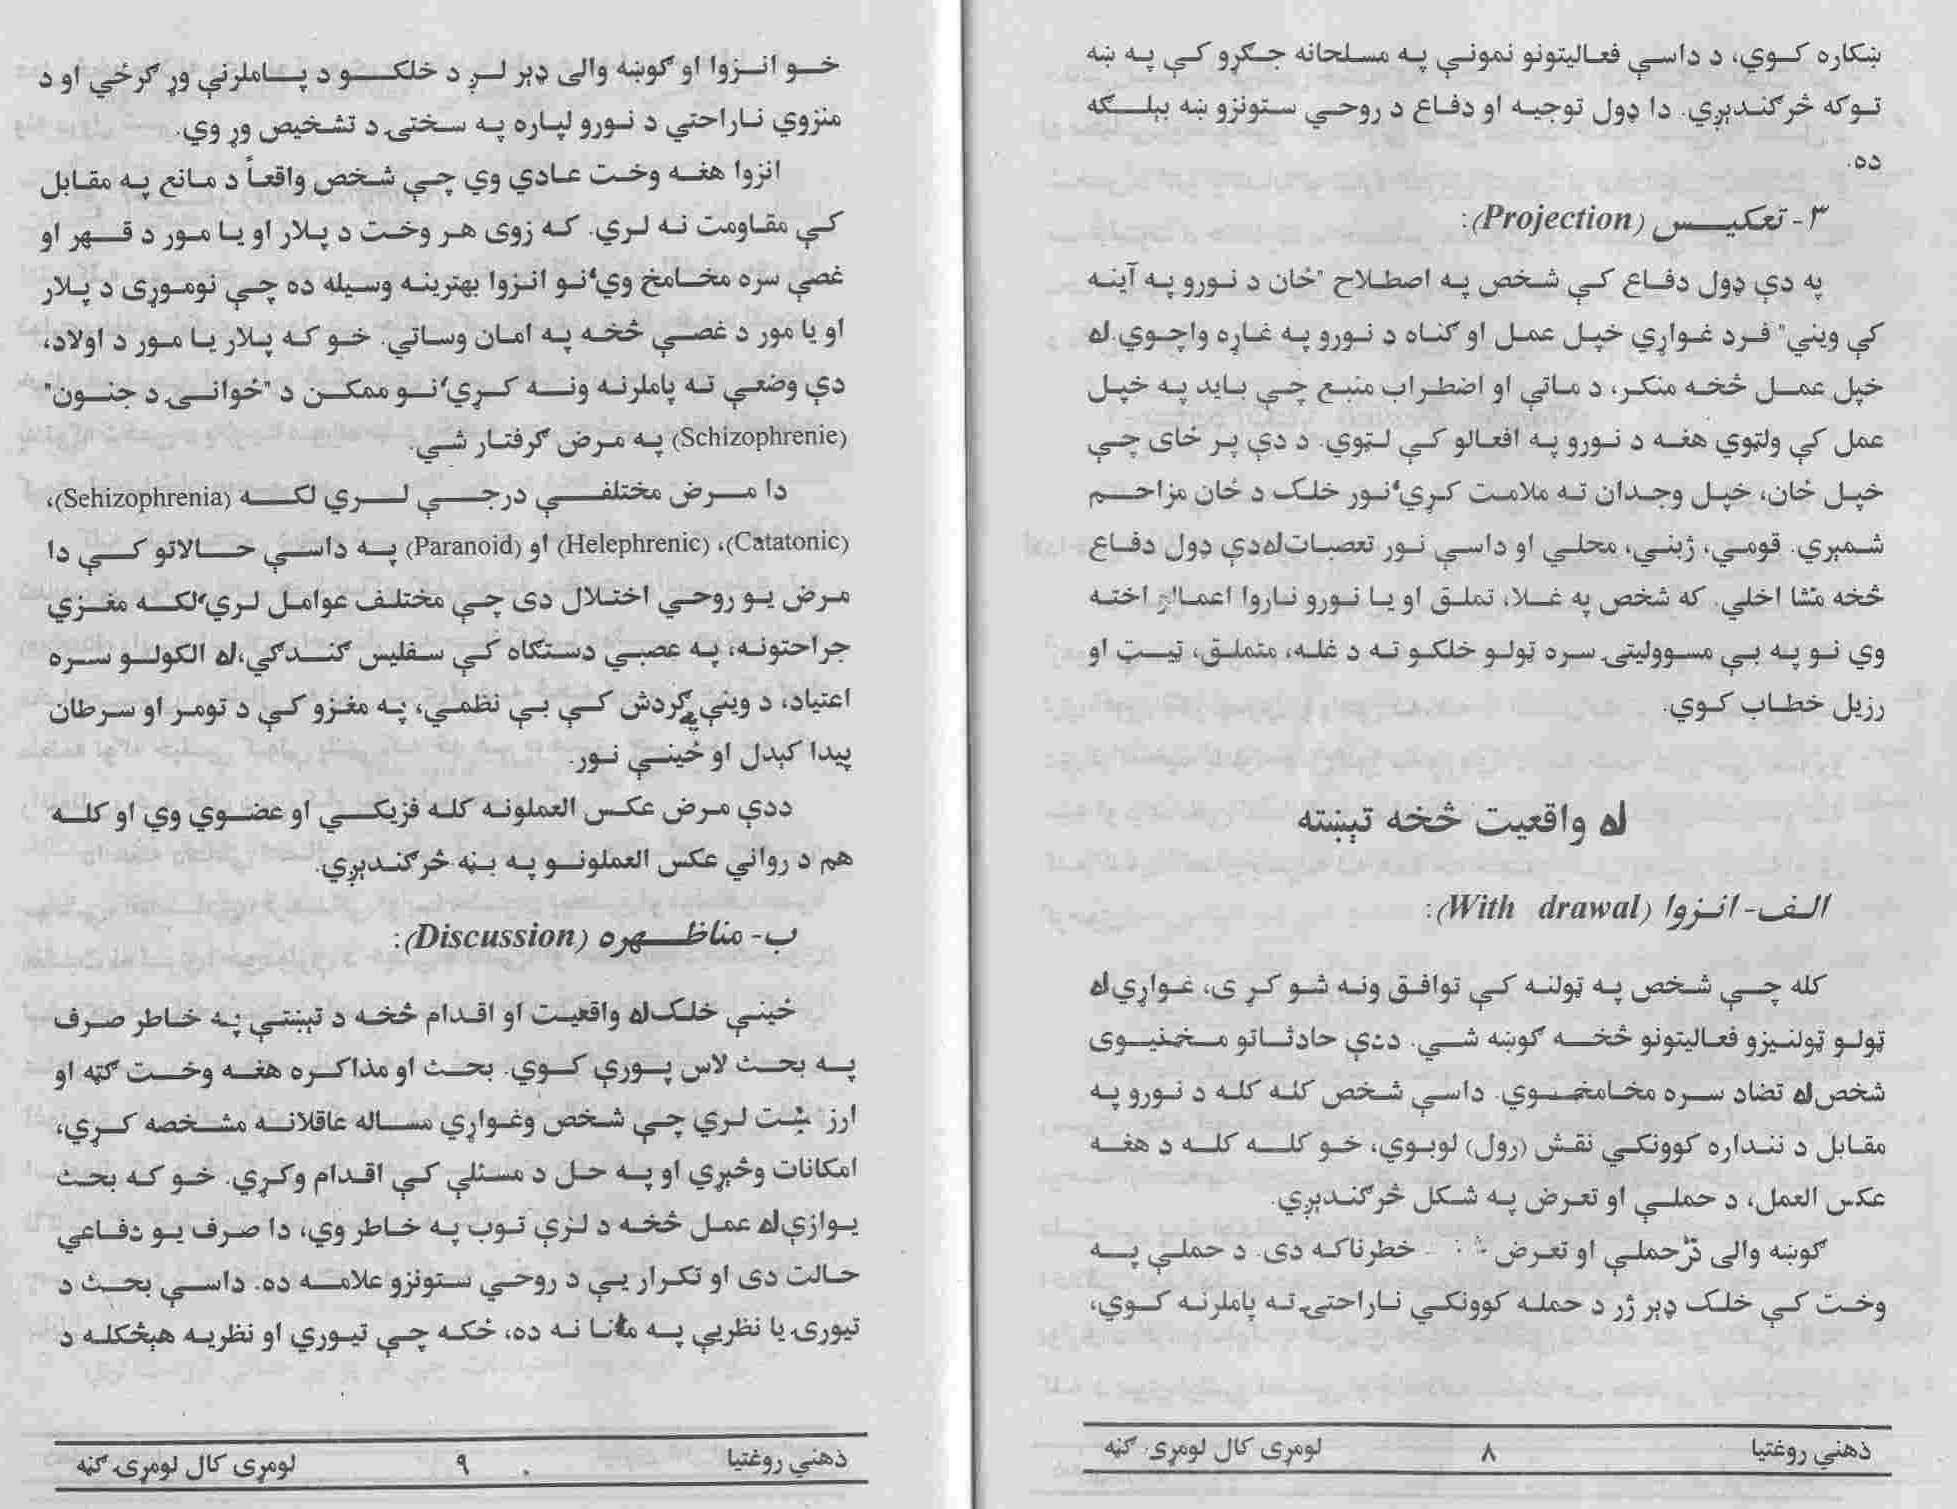 ښکاره کوي، د داسې فعالیتونو نمونې په مسلحانه جګړو کې په ښه
توګه څرګندېږي. دا ډول توجیه او دفاع د روحي ستونزو ښه بېلګه
ده.
۳- تعکیس (Projection):
په دې ډول دفاع کې شخص په اصطلاح "ځان د نورو په آینه
کې ویني" فرد غواړي خپل عمل او ګناه د نورو په غاړه واچوي. له
خپل عمل څخه منکر، د ماتې او اضطراب منبع چې باید په خپل
عمل کې ولټوي هغه د نورو په افعالو کې لټوي. د دې پر ځای چې
خپل ځان، خپل وجدان ته ملامت کړي، نور خلک د ځان مزاحم
شمېري. قومي، ژبني، محلي او داسې نور تعصبات له دې ډول دفاع
څخه منشا اخلي. که شخص په غلا، تملق او یا نورو ناروا اعمالو اخته
وي نو په بې مسوولیتۍ سره ټولو خلکو ته د غله، متملق، ټیټ او
رزیل خطاب کوي.
له واقعیت څخه تېښته
الف- انزوا (With drawal):
کله چې شخص په ټولنه کې توافق ونه شو کړی، غواړي له
ټولو ټولنیزو فعالیتونو څخه ګوښه شي. ددې حادثاتو مخنیوی
شخص له تضاد سره مخامخوي. داسې شخص کله کله د نورو په
مقابل د ننداره کوونکي نقش (رول) لوبوي، خو کله کله د هغه
عکس العمل، د حملې او تعرض په شکل څرګندېږي.
ګوښه والی تر حملې او تعرض خطرناکه دی. د حملې په
وخت کې خلک ډېر ژر د حمله کوونکي ناراحتۍ ته پاملرنه کوي،
ذهني روغتیا ۸ لومړی کال لومړۍ ګڼه
خو انزوا او ګوښه والی ډېر لږ د خلکو د پاملرنې وړ ګرځي او د
منزوي ناراحتي د نورو لپاره په سختۍ د تشخیص وړ وي.
انزوا هغه وخت عادي وي چې شخص واقعاً د مانع په مقابل
کې مقاومت نه لري. که زوی هر وخت د پلار او یا مور د قهر او
غصې سره مخامخ وي، نو انزوا بهترینه وسیله ده چې نوموړی د پلار
او یا مور د غصې څخه په امان وساتي. خو که پلار یا مور د اولاد،
دې وضعې ته پاملرنه ونه کړي، نو ممکن د "ځوانۍ د جنون"
(Schizophrenie) په مرض ګرفتار شي.
دا مرض مختلفې درجې لري لکه (Sehizophrenia)،
(Catatonic)، (Helephrenic) او (Paranoid) په داسې حالاتو کې دا
مرض یو روحي اختلال دی چې مختلف عوامل لري، لکه مغزي
جراحتونه، په عصبي دستګاه کې سفلیس ګندګي، له الکولو سره
اعتیاد، د وینې په ګردش کې بې نظمي، په مغزو کې د تومر او سرطان
پیدا کېدل او ځینې نور.
ددې مرض عکس العملونه کله فزیکي او عضوي وي او کله
هم د رواني عکس العملونو په بڼه څرګندېږي.
ب- مناظهره (Discussion):
ځینې خلک له واقعیت او اقدام څخه د تېښتې په خاطر صرف
په بحث لاس پورې کوي. بحث او مذاکره هغه وخت ګټه او
ارزښت لري چې شخص وغواړي مساله عاقلانه مشخصه کړي،
امکانات وڅېړي او په حل د مسئلې کې اقدام وکړي. خو که بحث
یوازې له عمل څخه د لرې توب په خاطر وي، دا صرف یو دفاعي
حالت دی او تکرار یې د روحي ستونزو علامه ده. داسې بحث د
تیورۍ یا نظریې په مانا نه ده، ځکه چې تیوري او نظریه هېڅکله د
ذهني روغتیا ۹ لومړی کال لومړۍ ګڼه